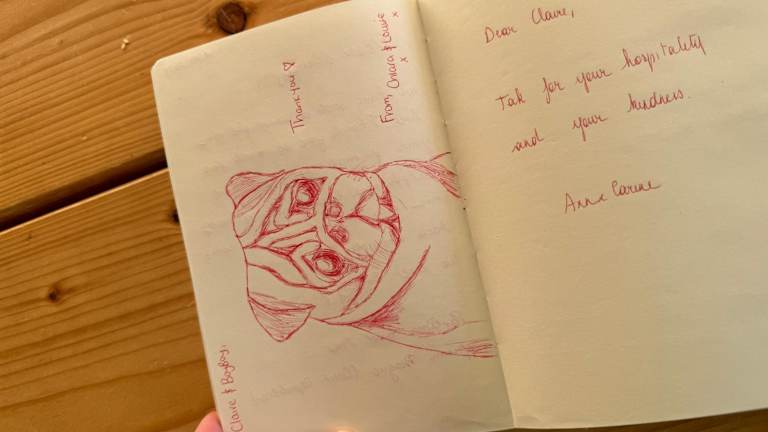 Claire & BayBay,
Thank you ♡
From, Chiara & Louise
x x
Dear Claire,
Tak for your hospitality
and your kindness.
Anne Carine